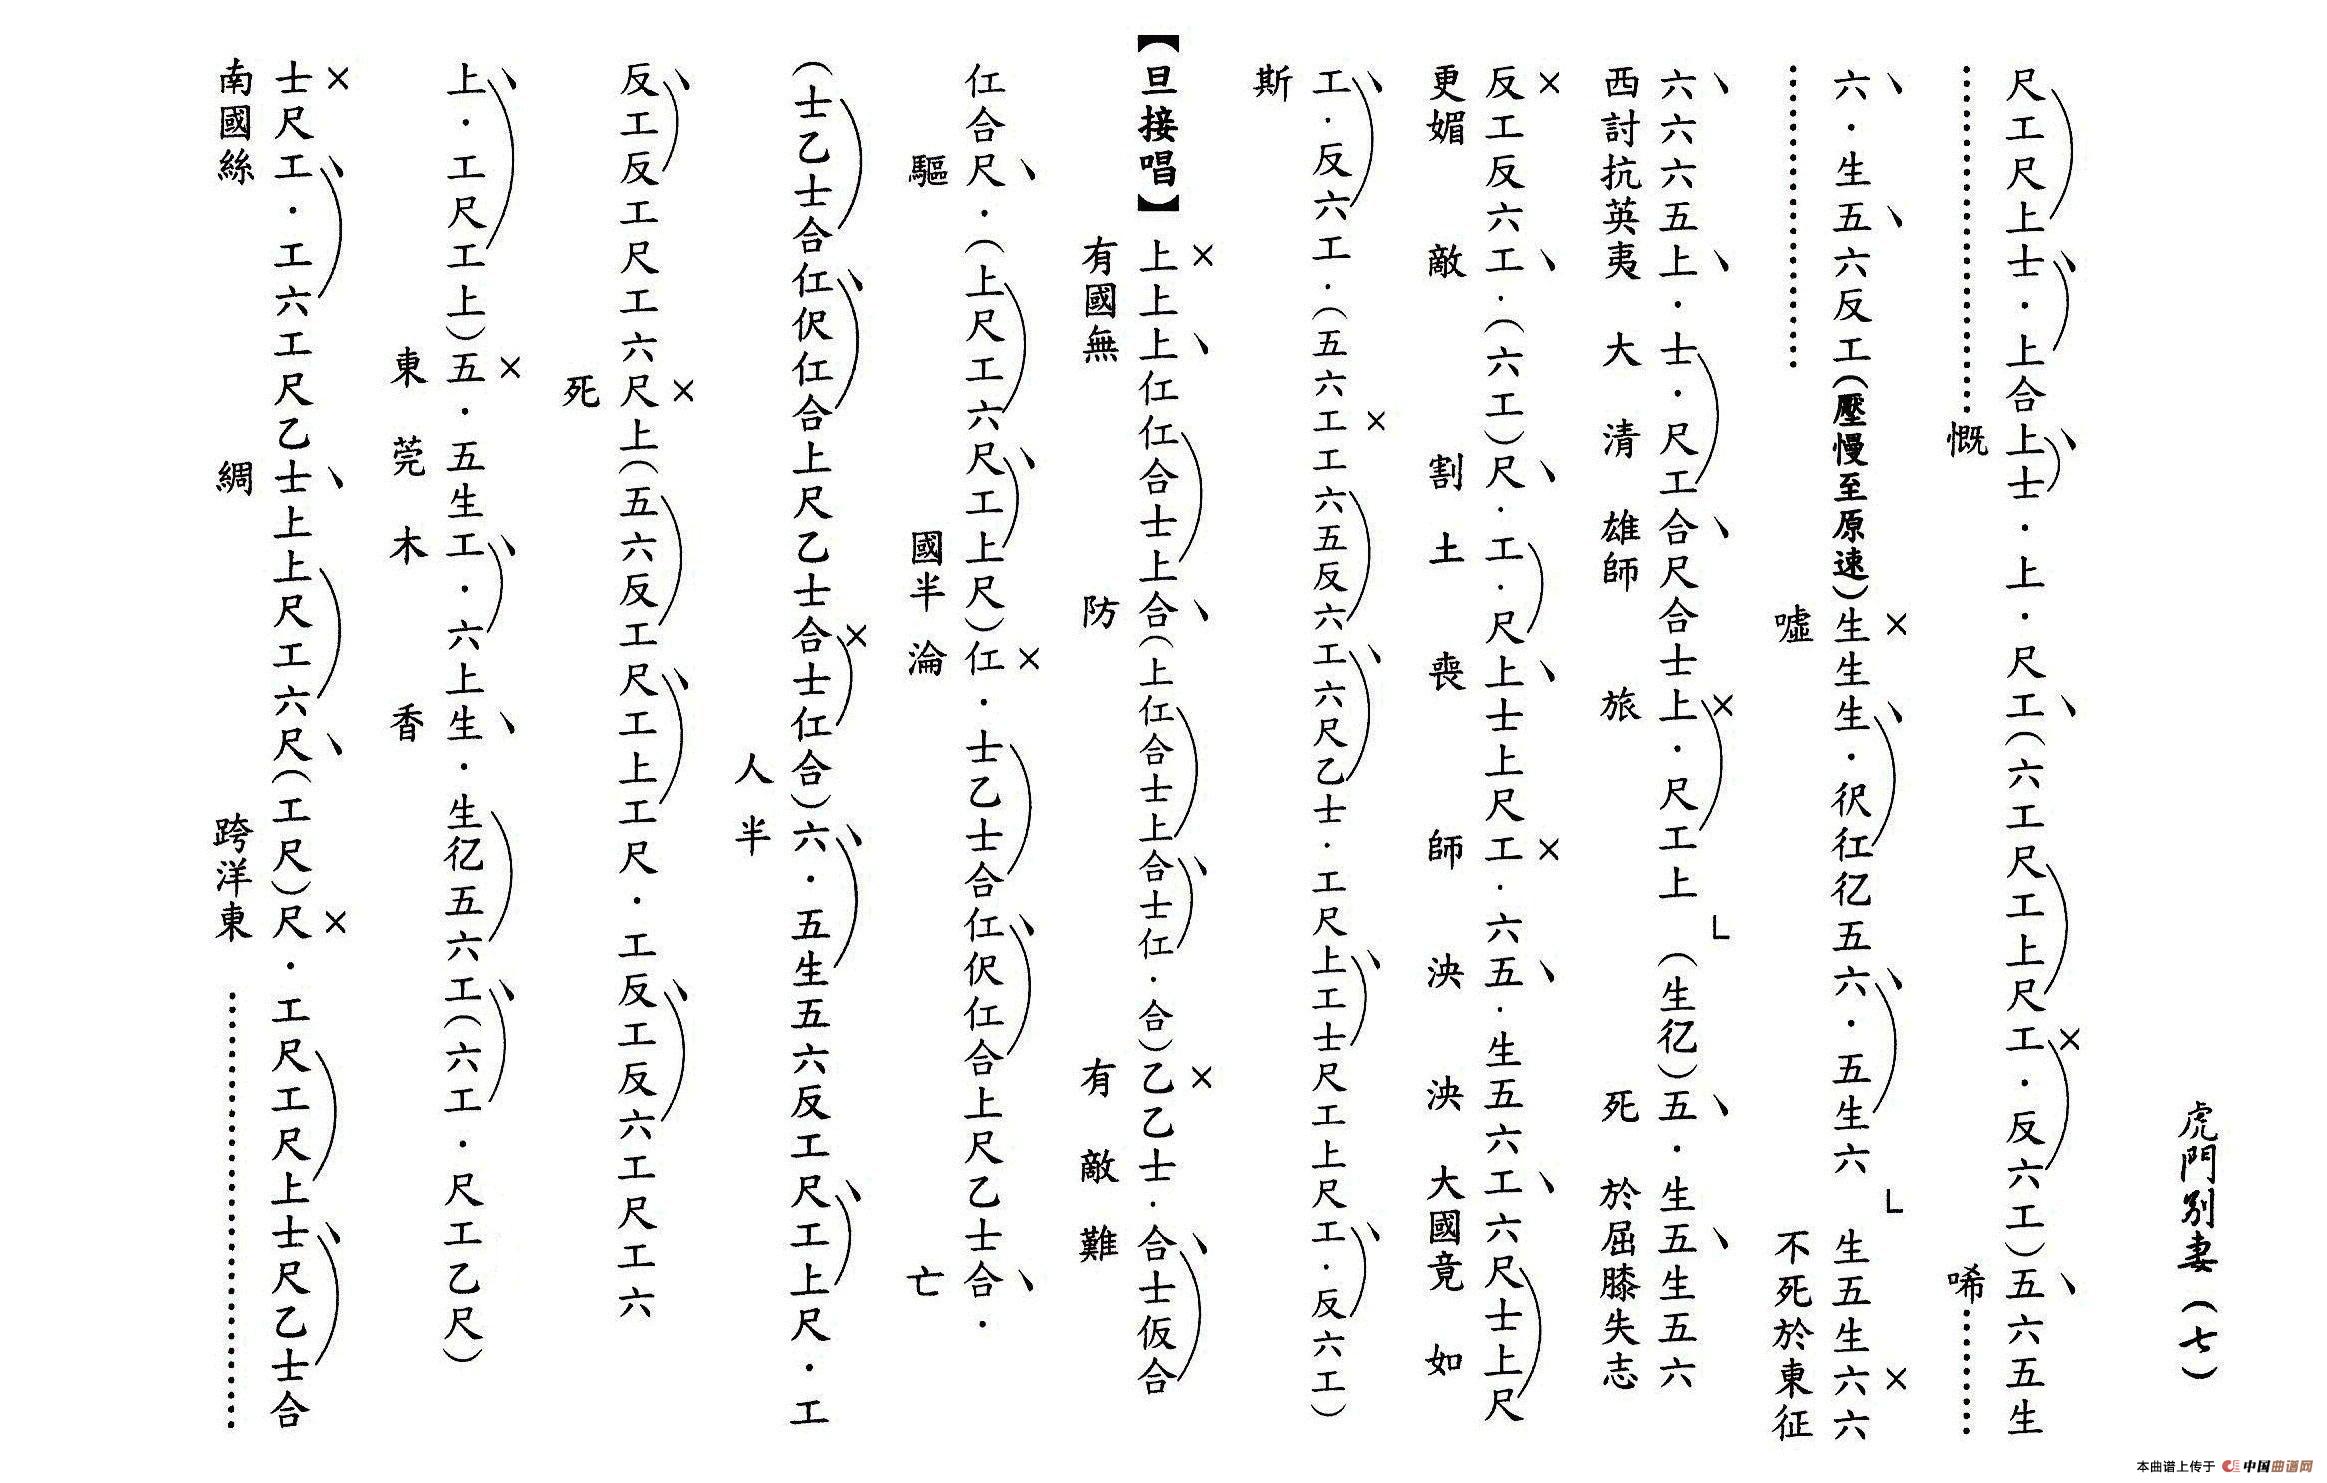 虎門別妻（七）
尺工尺上士．上合上士．上．尺工（六工尺工上尺工．反六工）五六五生
慨　唏
六．生五六反工（壓慢至原速）生生生．伬仜亿五六．五生六　生五生六六
噓　不死於東征
六六六五上．士．尺工合尺合士上．尺工上（生亿）五．生五生五六
西討抗英夷　大清雄師旅　死於屈膝失志
反工反六工．（六工）尺．工．尺上士上尺工．六五．生五六工六尺士上尺
更媚敵　割土喪師　泱泱大國竟如
工．反六工．（五六工工六五反六工六尺乙士．工尺上工士尺工上尺工．反六工）
斯
【旦接唱】上上上仜仜合士上合（上仜合士上合士仜．合）乙乙士．合士仮合
有國無防　有敵難
仜合尺．（上尺工六尺工上尺）仜．士乙士合仜伬仜合上尺乙士合．
驅　國半淪亡
（士乙士合仜伬仜合上尺乙士合士仜合）六．五生五六反工尺工上尺．工
人半
反工反工尺工六尺上（五六反工尺工上工尺．工反工反六工尺工六
死
上．工尺工上）五．五生工．六上生．生亿五六工（六工．尺工乙尺）
東莞木香
士尺工．工六工尺乙士上上尺工六尺（工尺）尺．工尺工尺上士尺乙士合
南國絲綢　跨洋東
本曲谱上传于 中国曲谱网